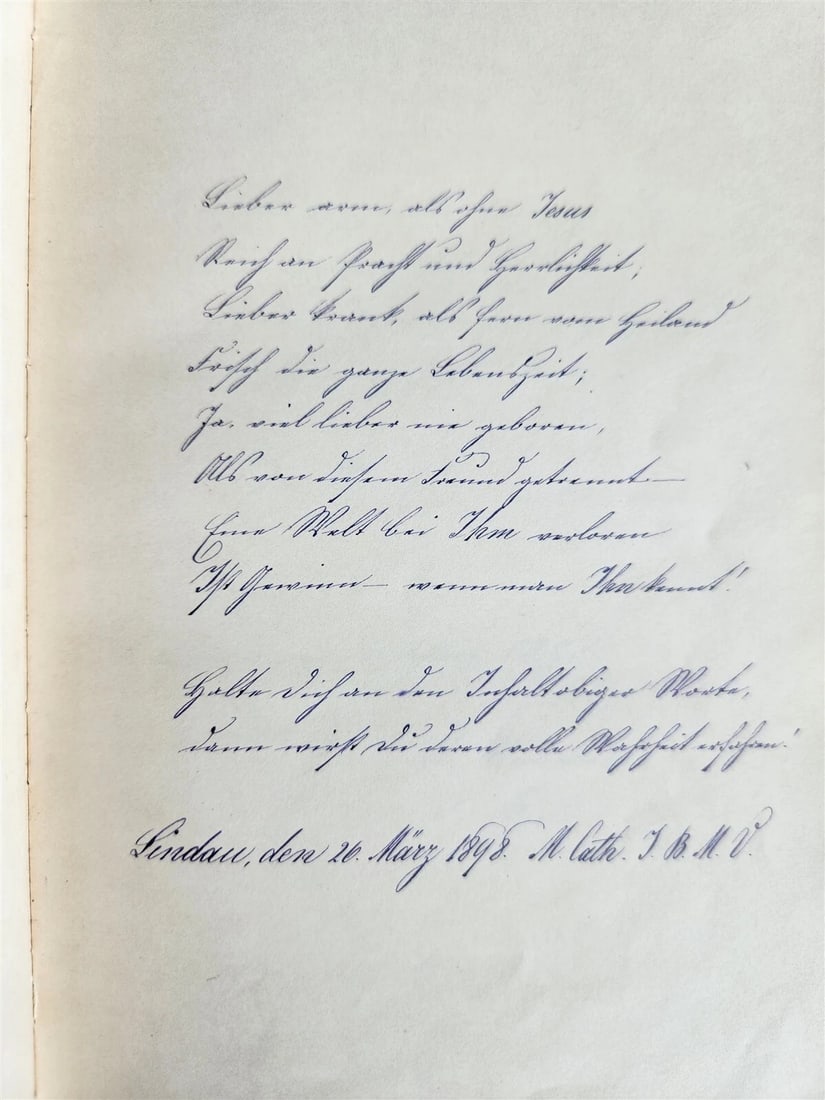 Lieber arm, als ohne Jesus
Reich an Pracht und Herrlichkeit;
Lieber krank, als fern vom Heiland
Frisch die ganze Lebenszeit;
Ja. viel lieber nie geboren,
Als von diesem Freund getrennt —
Eine Welt bei Ihm verloren
Ist Gewinn — wenn man Ihn kennt!
Halte Dich an den Inhalt obiger Worte,
dann wirst Du deren volle Wahrheit erfahren!
Lindau, den 26. März 1898. M. Cath. I. B. M. V.